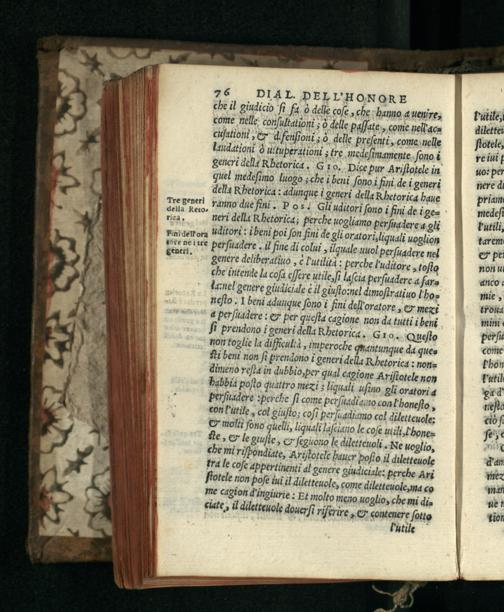 76 DIAL. DELL'HONORE
che il giudicio si fà ò delle cose, che hanno a venire,
come nelle consultationi; ò delle passate, come nell'ac-
cusationi, & difensioni; ò delle presenti, come nelle
laudationi ò vituperationi; tre medesimamente sono i
generi della Rhetorica. GIO. Dice pur Aristotele in
quel medesimo luogo; che i beni sono i fini de i generi
della Rhetorica: adunque i generi della Rhetorica haue
ranno due fini. POS. Gli uditori sono i fini de i ge-
neri della Rhetorica; perche uogliamo persuadere a gli
uditori: i beni poi son fini de gli oratori, liquali uoglion
persuadere. il fine di colui, ilquale vuol persuadere nel
genere deliberatiuo, è l'utilità: perche l'uditore, tosto
che intende la cosa essere utile, si lascia persuadere a far-
la: nel genere giudiciale è il giusto: nel dimostratiuo l'ho-
nesto. I beni adunque sono i fini dell'oratore, & mezi
a persuadere: & per questa cagione non da tutti i beni
si prendono i generi della Rhetorica. GIO. Questo
non toglie la difficultà, imperoche quantunque da que-
sti beni non si prendono i generi della Rhetorica: non-
dimeno resta in dubbio, per qual cagione Aristotele non
habbia posto quattro mezi; liquali usino gli oratori a
persuadere: perche sì come persuadiamo con l'honesto,
con l'utile, col giusto; così persuadiamo col diletteuole:
& molti sono quelli, liquali lasciano le cose utili, l'hone-
ste, & le giuste, & seguono le diletteuoli. Ne uoglio,
che mi rispondiate, Aristotele hauer posto il diletteuole
tra le cose appertinenti al genere giudiciale: perche Ari
stotele non pose iui il diletteuole, come diletteuole, ma co
me cagion d'ingiurie: Et molto meno uoglio, che mi di-
ciate, il diletteuole douersi riferire, & contenere sotto
l'utile
Tre generi
della Reto-
rica.
Fini dell'ora
tore ne i tre
generi.